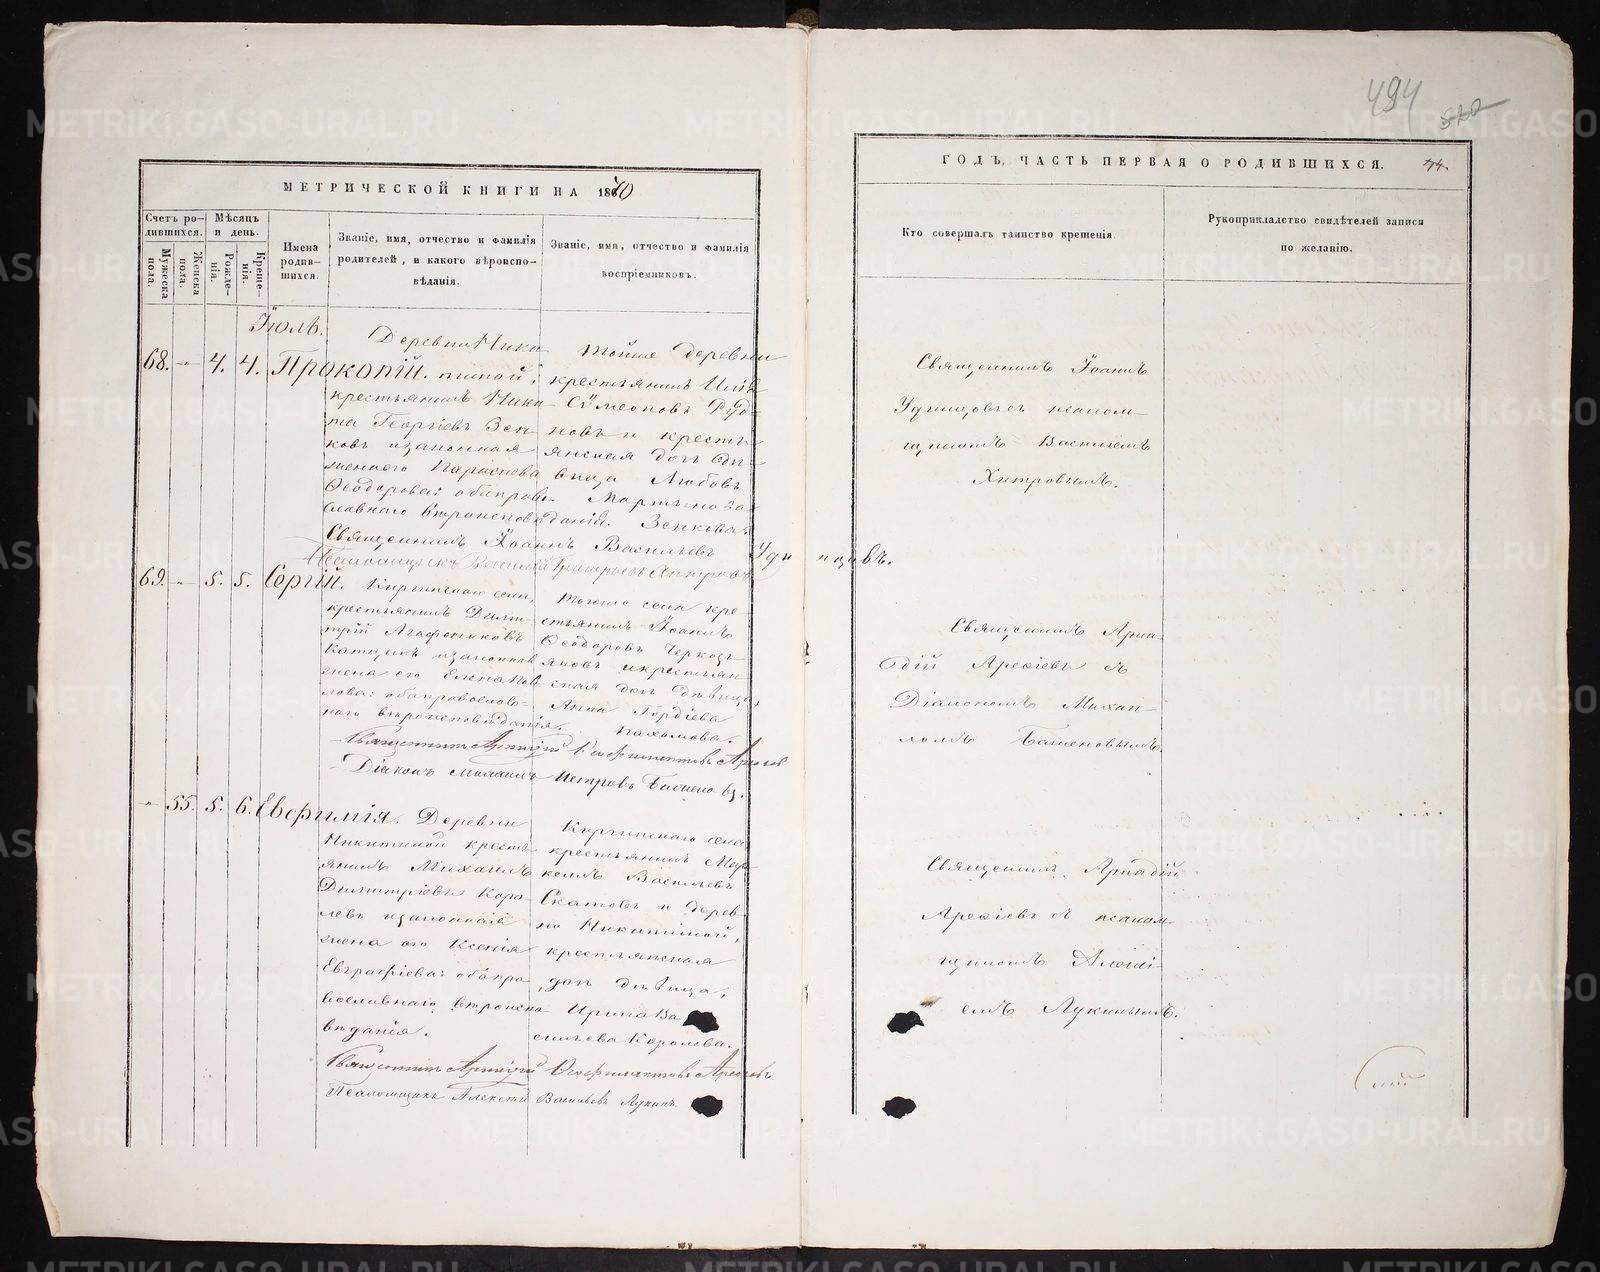 494
520
МЕТРИЧЕСКОЙ КНИГИ НА 1870
ГОДЪ, ЧАСТЬ ПЕРВАЯ О РОДИВШИХСЯ.
74.
Счетъ ро-
дившихся.
Мѣсяцъ
и день.
Мужеска пола.
Женска пола.
Рожде-
нія.
Креще-
нія.
Имена
родив-
шихся.
Званіе, имя, отчество и фамилія
родителей, и какого вѣроиспо-
вѣданія.
Званіе, имя, отчество и фамилія
воспріемниковъ.
Кто совершалъ таинство крещенія.
Рукоприкладство свидѣтелей записи
по желанію.
Іюль.
68. 4. 4. Прокопій.
Деревни Ники
тиной,
крестьянинъ Ники
та Георгіевъ Зен
ковъ и законная
жена его Параскева
Ѳеодорова: оба право
славнаго вѣроисповѣданія.
тойже деревни
крестьянинъ Илія
Сѵмеоновъ Руд-
новъ и кресть-
янская дочь дѣ-
вица Любовь
Мартынова
Зенкова.
Священникъ Іоаннъ
Удинцовъ съ псалом-
щикомъ Василіемъ
Хитровымъ.
Священникъ Іоаннъ Васильевъ Удинцовъ.
Псаломщикъ Василій Григорьевъ Хитровъ
69. 5. 5. Сергій.
Киргинскаго села,
крестьянинъ Дими-
трій Агафониковъ
Катцинъ и законная
жена его Елена Пав
лова: оба православ-
наго вѣроисповѣданія.
тогоже села кре-
стьянинъ Іоаннъ
Ѳеодоровъ Черкац-
яновъ и крестьян
ская дочь дѣвица,
Анна Гордіева
Пахомова.
Священникъ Арка-
дій Арефіевъ съ
Діакономъ Михаи-
ломъ Башеновымъ.
Священникъ Аркадій Ѳеофилактовъ Арефіевъ
Діаконъ Михаилъ Петровъ Башеновъ.
55. 5. 6. Евфимія.
Деревни
Никитиной кресть
янинъ Михаилъ
Димитріевъ Коро
левъ и законная
жена его Ксенія
Евграфіева: оба пра
вославнаго вѣроиспо
вѣданія.
Киргинскаго села
крестьянинъ Мар-
келъ Васильевъ
Скатовъ и дерев
ни Никитиной,
крестьянская
дочь дѣвица,
Ирина Ва
сильева Королева.
Священникъ Аркадій
Арефіевъ съ псалом-
щикомъ Алексі-
емъ Лукинымъ.
Священникъ Аркадій Ѳеофилактовъ Арефіевъ
Псаломщикъ Алексій Васильевъ Лукинъ.
METRIKI.GASO-URAL.RU